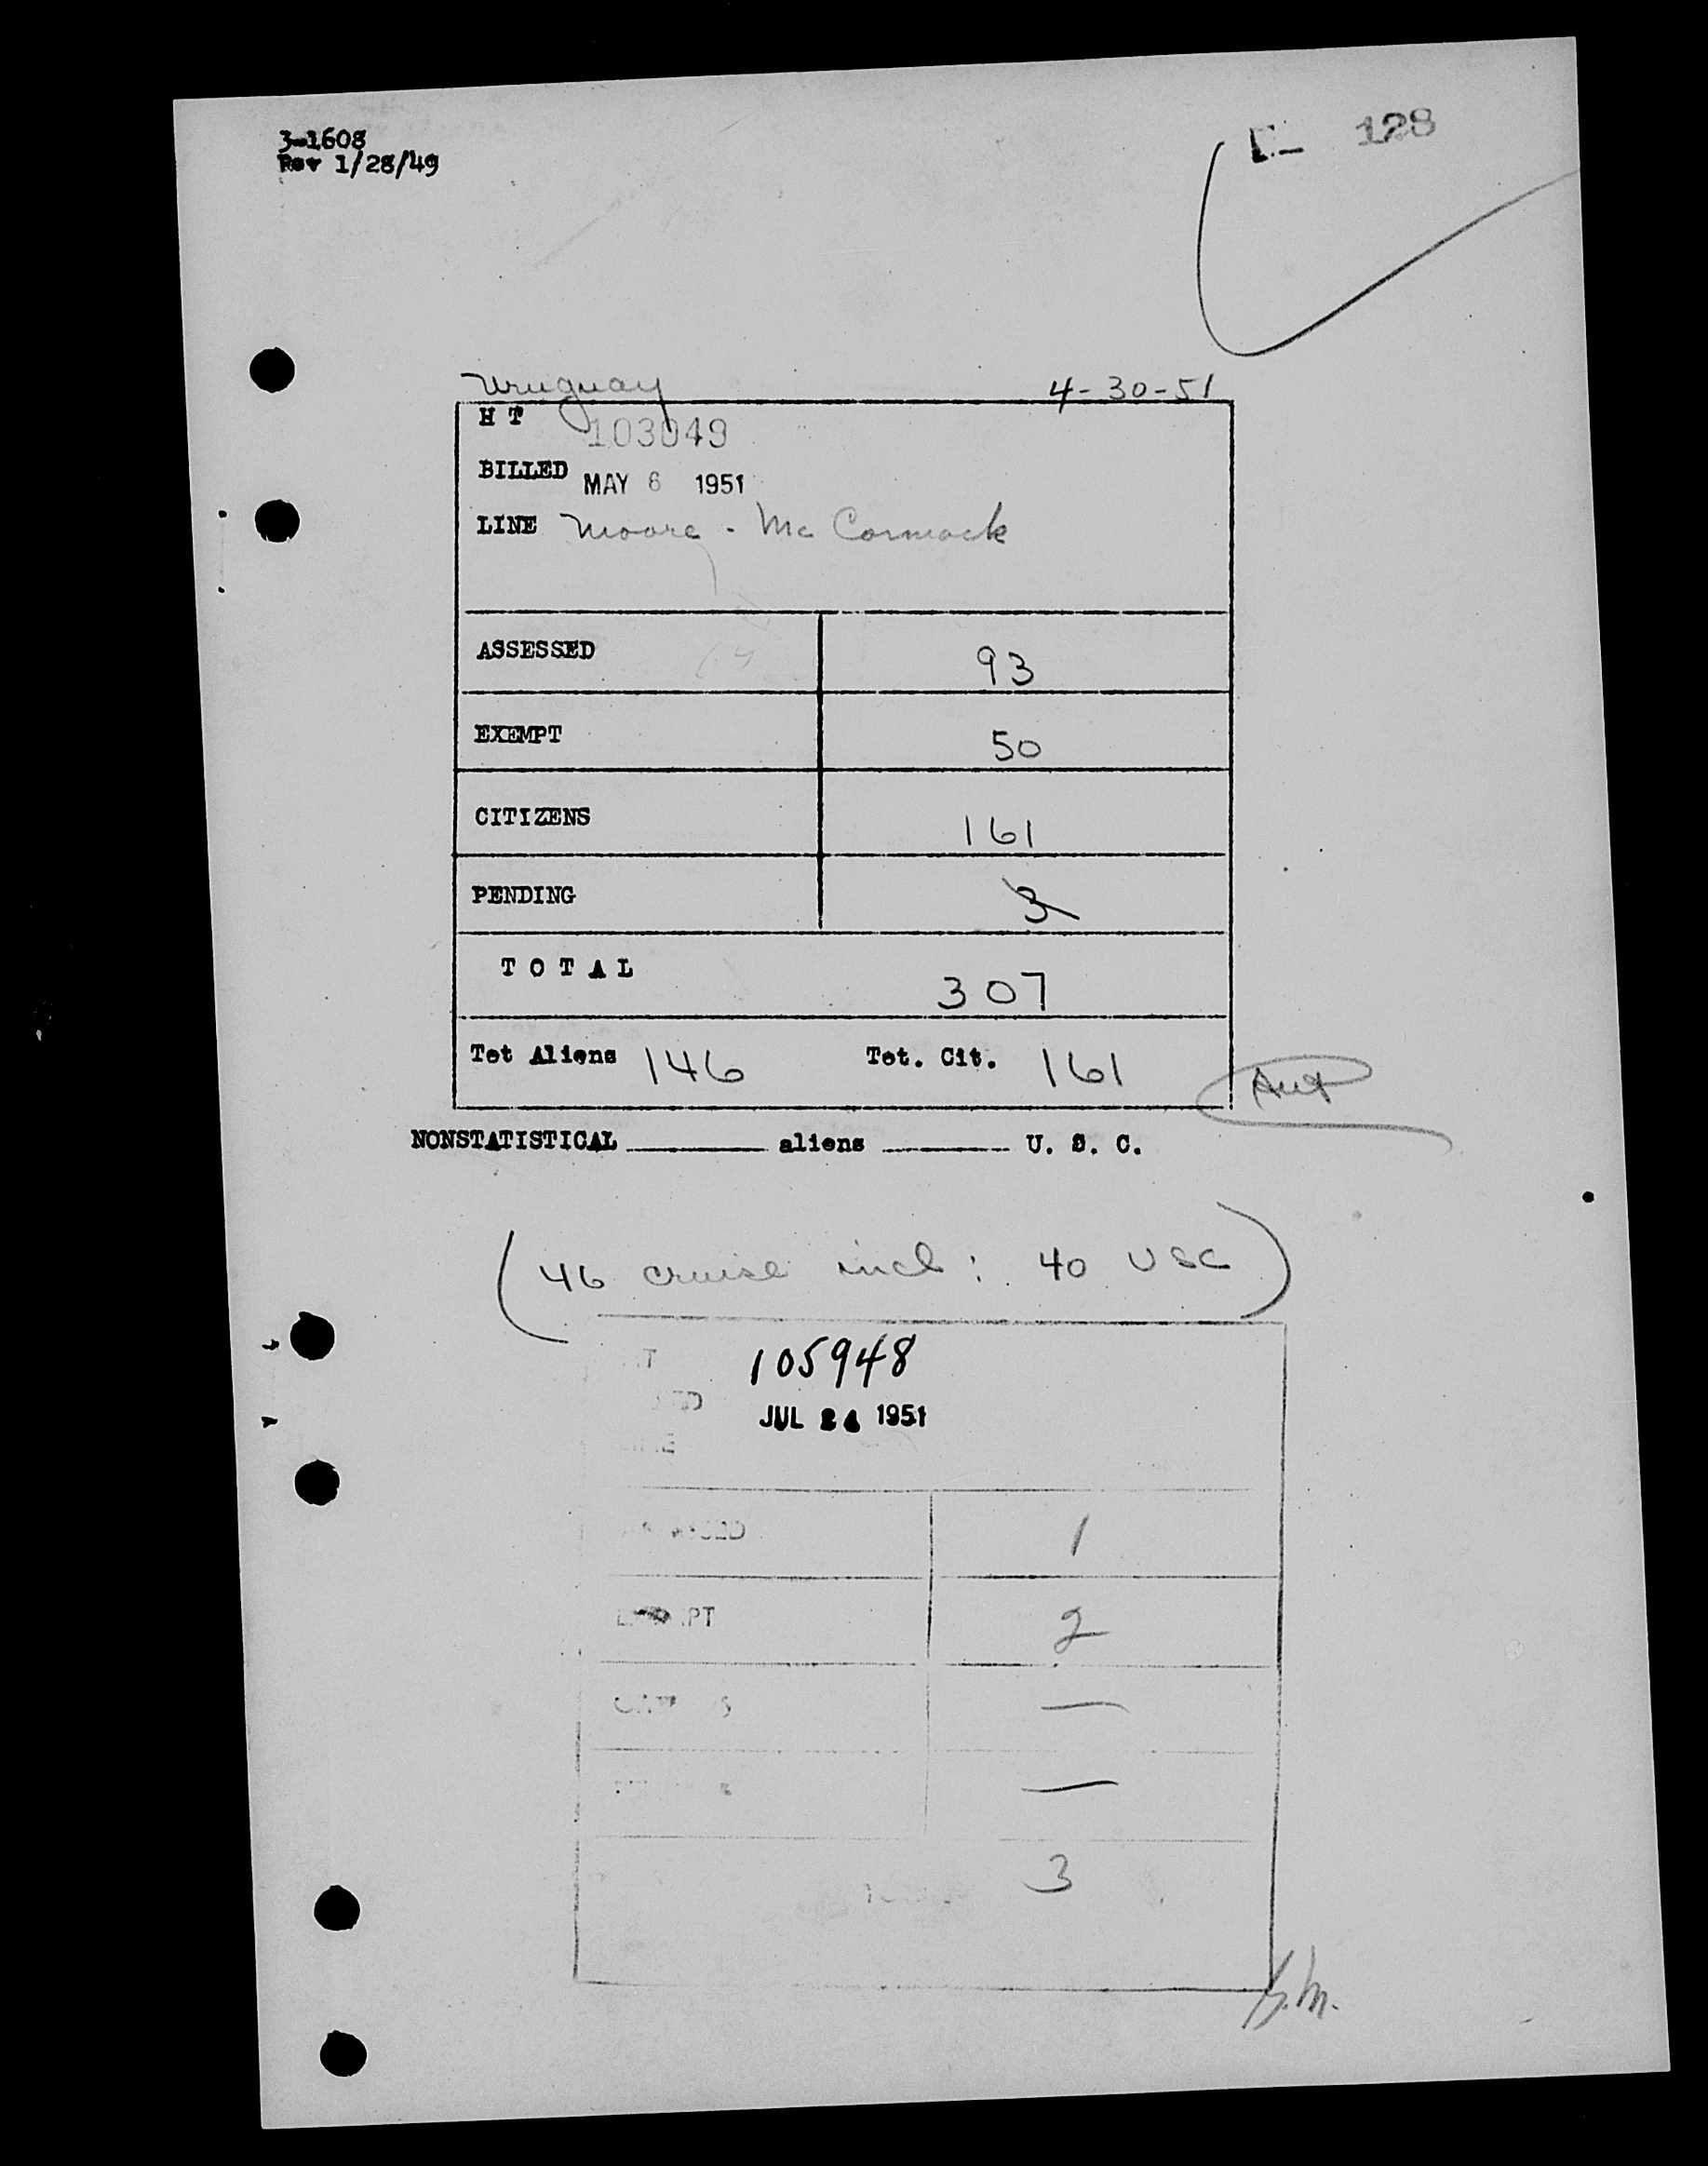 3-1608
Rev 1/28/49
128
Uruguay 4-30-51
H T 103049
BILLED MAY 6 1951
LINE Moore - Mc Cormack
ASSESSED 93
EXEMPT 50
CITIZENS 161
PENDING 3
T O T A L 307
Tot Aliens 146 Tot. Cit. 161
NONSTATISTICAL aliens U. S. C.
(46 cruise incl: 40 USC)
105948
JUL 24 1951
1
2
—
—
3